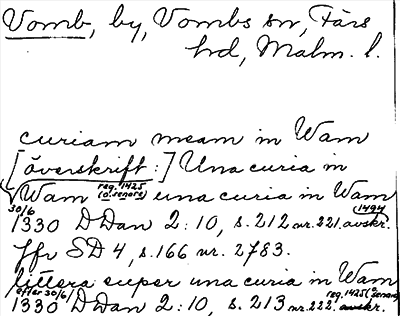 Vomb, by, Vombs sn, Färs
hd, Malm. l.
curiam meam in Wam
[överskrift:] Una curia in
Wam reg. 1425 (o. senare) una curia in Wam
30/6 1330 DDan 2:10, s. 212 nr. 221. avskr. 1494
Jfr SD 4, s. 166 nr. 2783.
littera super una curia in Wam
efter 30/6 1330 DDan 2:10, s. 213 nr. 222. reg. 1425 (o. senare) avskr.